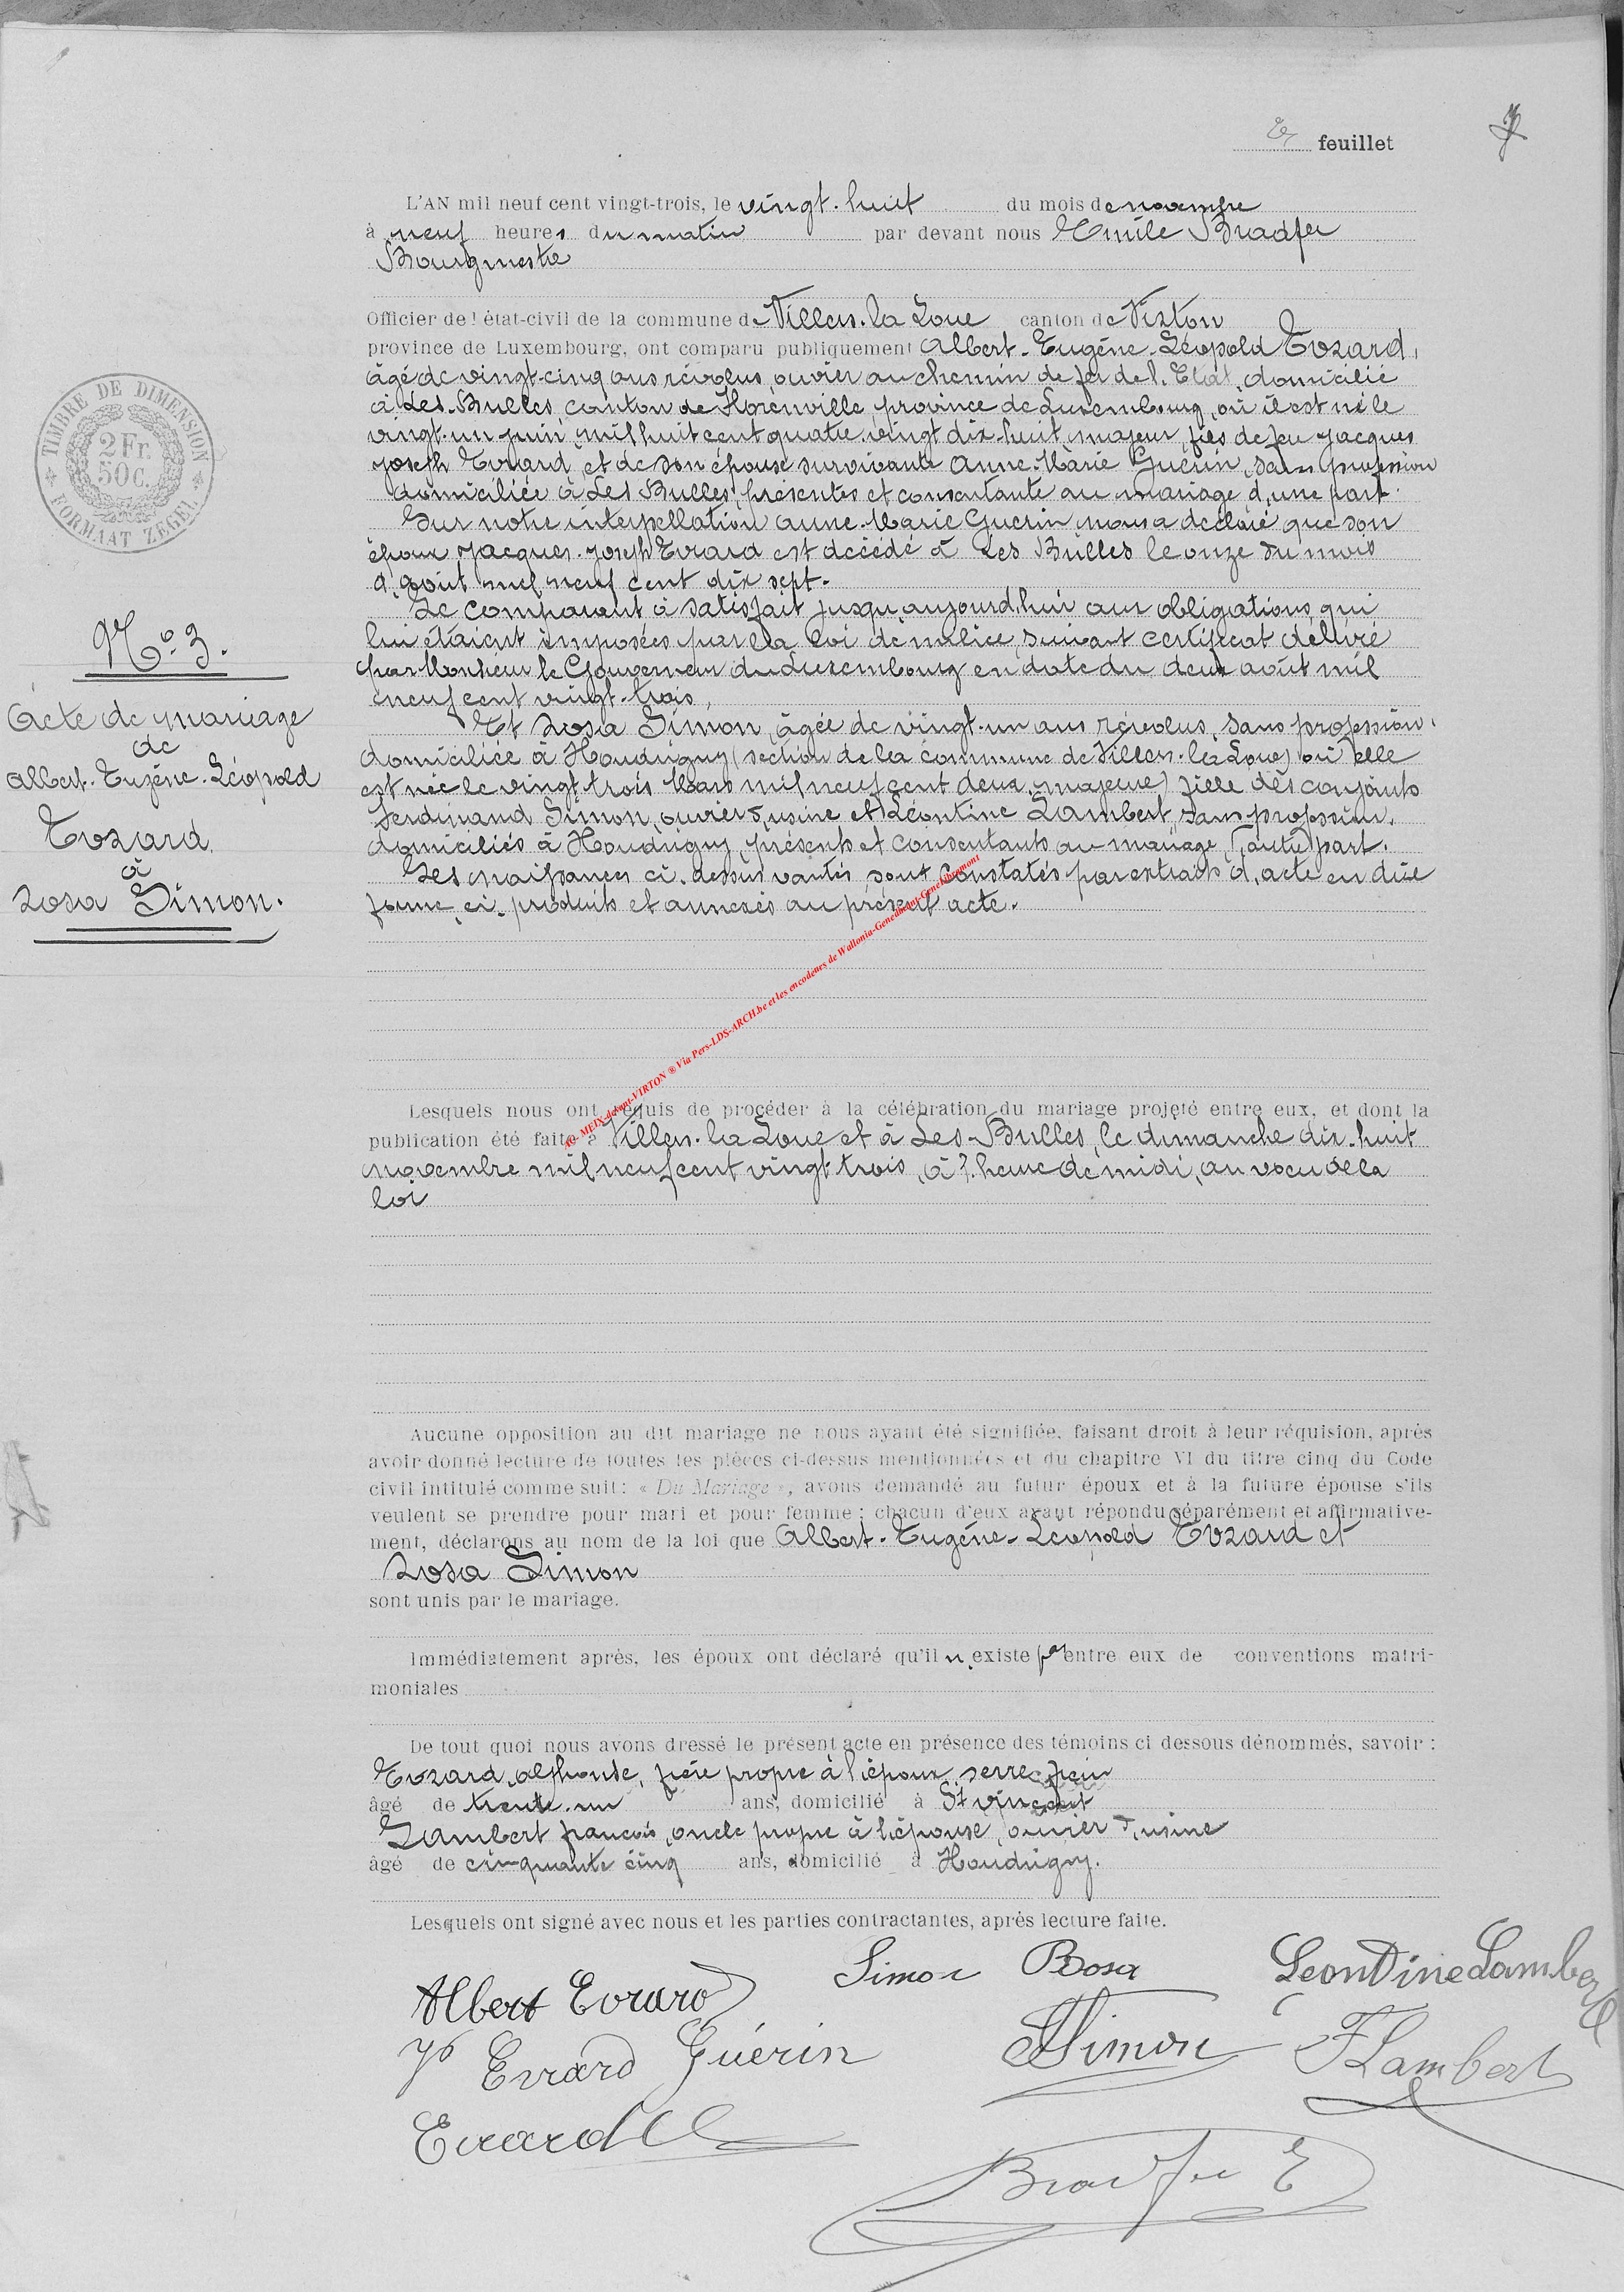 feuillet
L'AN mil neuf cent vingt-trois, le vingt-huit du mois de novembre
à neuf heures du matin par devant nous Emile Bradfer
Bourgmestre
Officier de l'état-civil de la commune de Villers-la-Loue canton de Virton
province de Luxembourg, ont comparu publiquement Albert-Eugéne-Léopold Evrard,
âgé de vingt-cinq ans révolus, ouvrier au chemin de fer de l'Etat, domicilié
à Les-Bulles, canton de Florenville, province de Luxembourg, où il est né le
vingt-un juin mil huit cent quatre-vingt dix-huit, majeur, fils de feu Jacques
Joseph Evrard, et de son épouse survivante Anne-Marie Guérin, sans profession
domiciliée à Les Bulles, présente et consentante au mariage d'une part.
Sur notre interpellation Anne-Marie Guerin nous a déclaré que son
époux Jacques-Joseph Evrard est décédé à Les Bulles le onze du mois
d'août mil neuf cent dix sept.
Le comparant a satisfait jusqu'aujourd'hui aux obligations qui
lui étaient imposées par la loi de milice, suivant certificat délivré
par Monsieur le Gouverneur du Luxembourg en date du deux août mil
neuf cent vingt-trois,
Et Rosa Simon, âgée de vingt-un ans révolus, sans profession,
domiciliée à Houdrigny (section de la commune de Villers-la-Loue) où elle
est née le vingt trois Mars mil neuf cent deux, majeure, fille des conjoints
Ferdinand Simon, ouvrier d'usine et Léontine Lambert, sans profession,
domiciliés à Houdrigny, présents et consentants au mariage, d'autre part.
Les naissances ci-dessus vantés sont constatés par extraits d'acte en due
forme, ci-produits et annexés au présent acte.
TIMBRE DE DIMENSION
2 Fr.
50 c.
FORMAAT ZEGEL
No. 3.
Acte de mariage
de
Albert-Eugéne-Léopold
Evrard
à
Rosa Simon.
AC-MEIX-devant-VIRTON ® Via Pers-LDS-ARCH.be et les encodeurs de Wallonia-Genedinant-Genelibramont
Lesquels nous ont requis de procéder à la célébration du mariage projeté entre eux, et dont la
publication été faite à Villers-la-Loue et à Les-Bulles, le dimanche dix-huit
novembre mil neuf cent vingt trois, à heure de midi, au voeu de la
loi
Aucune opposition au dit mariage ne nous ayant été signifiée, faisant droit à leur réquision, après
avoir donné lecture de toutes les pièces ci-dessus mentionnées et du chapitre VI du titre cinq du Code
civil intitulé comme suit : « Du Mariage », avons demandé au futur époux et à la future épouse s'ils
veulent se prendre pour mari et pour femme ; chacun d'eux ayant répondu séparément et affirmative-
ment, déclarons au nom de la loi que Albert-Eugéne-Léopold Evrard et
Rosa Simon
sont unis par le mariage.
Immédiatement après, les époux ont déclaré qu'il n'existe pas entre eux de conventions matri-
moniales
De tout quoi nous avons dressé le présent acte en présence des témoins ci dessous dénommés, savoir :
Evrard, Alphonse, frére propre à l'époux, serre-frein
âgé de trente-un ans, domicilié à St vincent
Lambert françois, oncle propre à l'épouse, ouvrier d'usine
âgé de cinquante cinq ans, domicilié à Houdrigny.
Lesquels ont signé avec nous et les parties contractantes, après lecture faite.
Albert Evrard Simon Rosa Leontine Lambert
Evrard Guérin Simon F Lambert
Evrard
Bradfer E